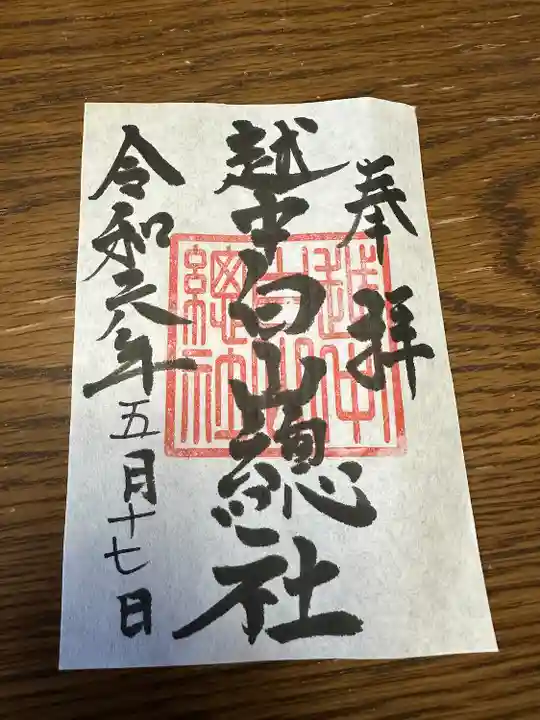 奉拝
越中白山總社
越中
白山
總社
令和六年五月十七日